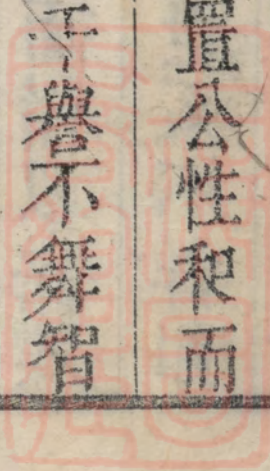 置公性和而
干譽不舞智